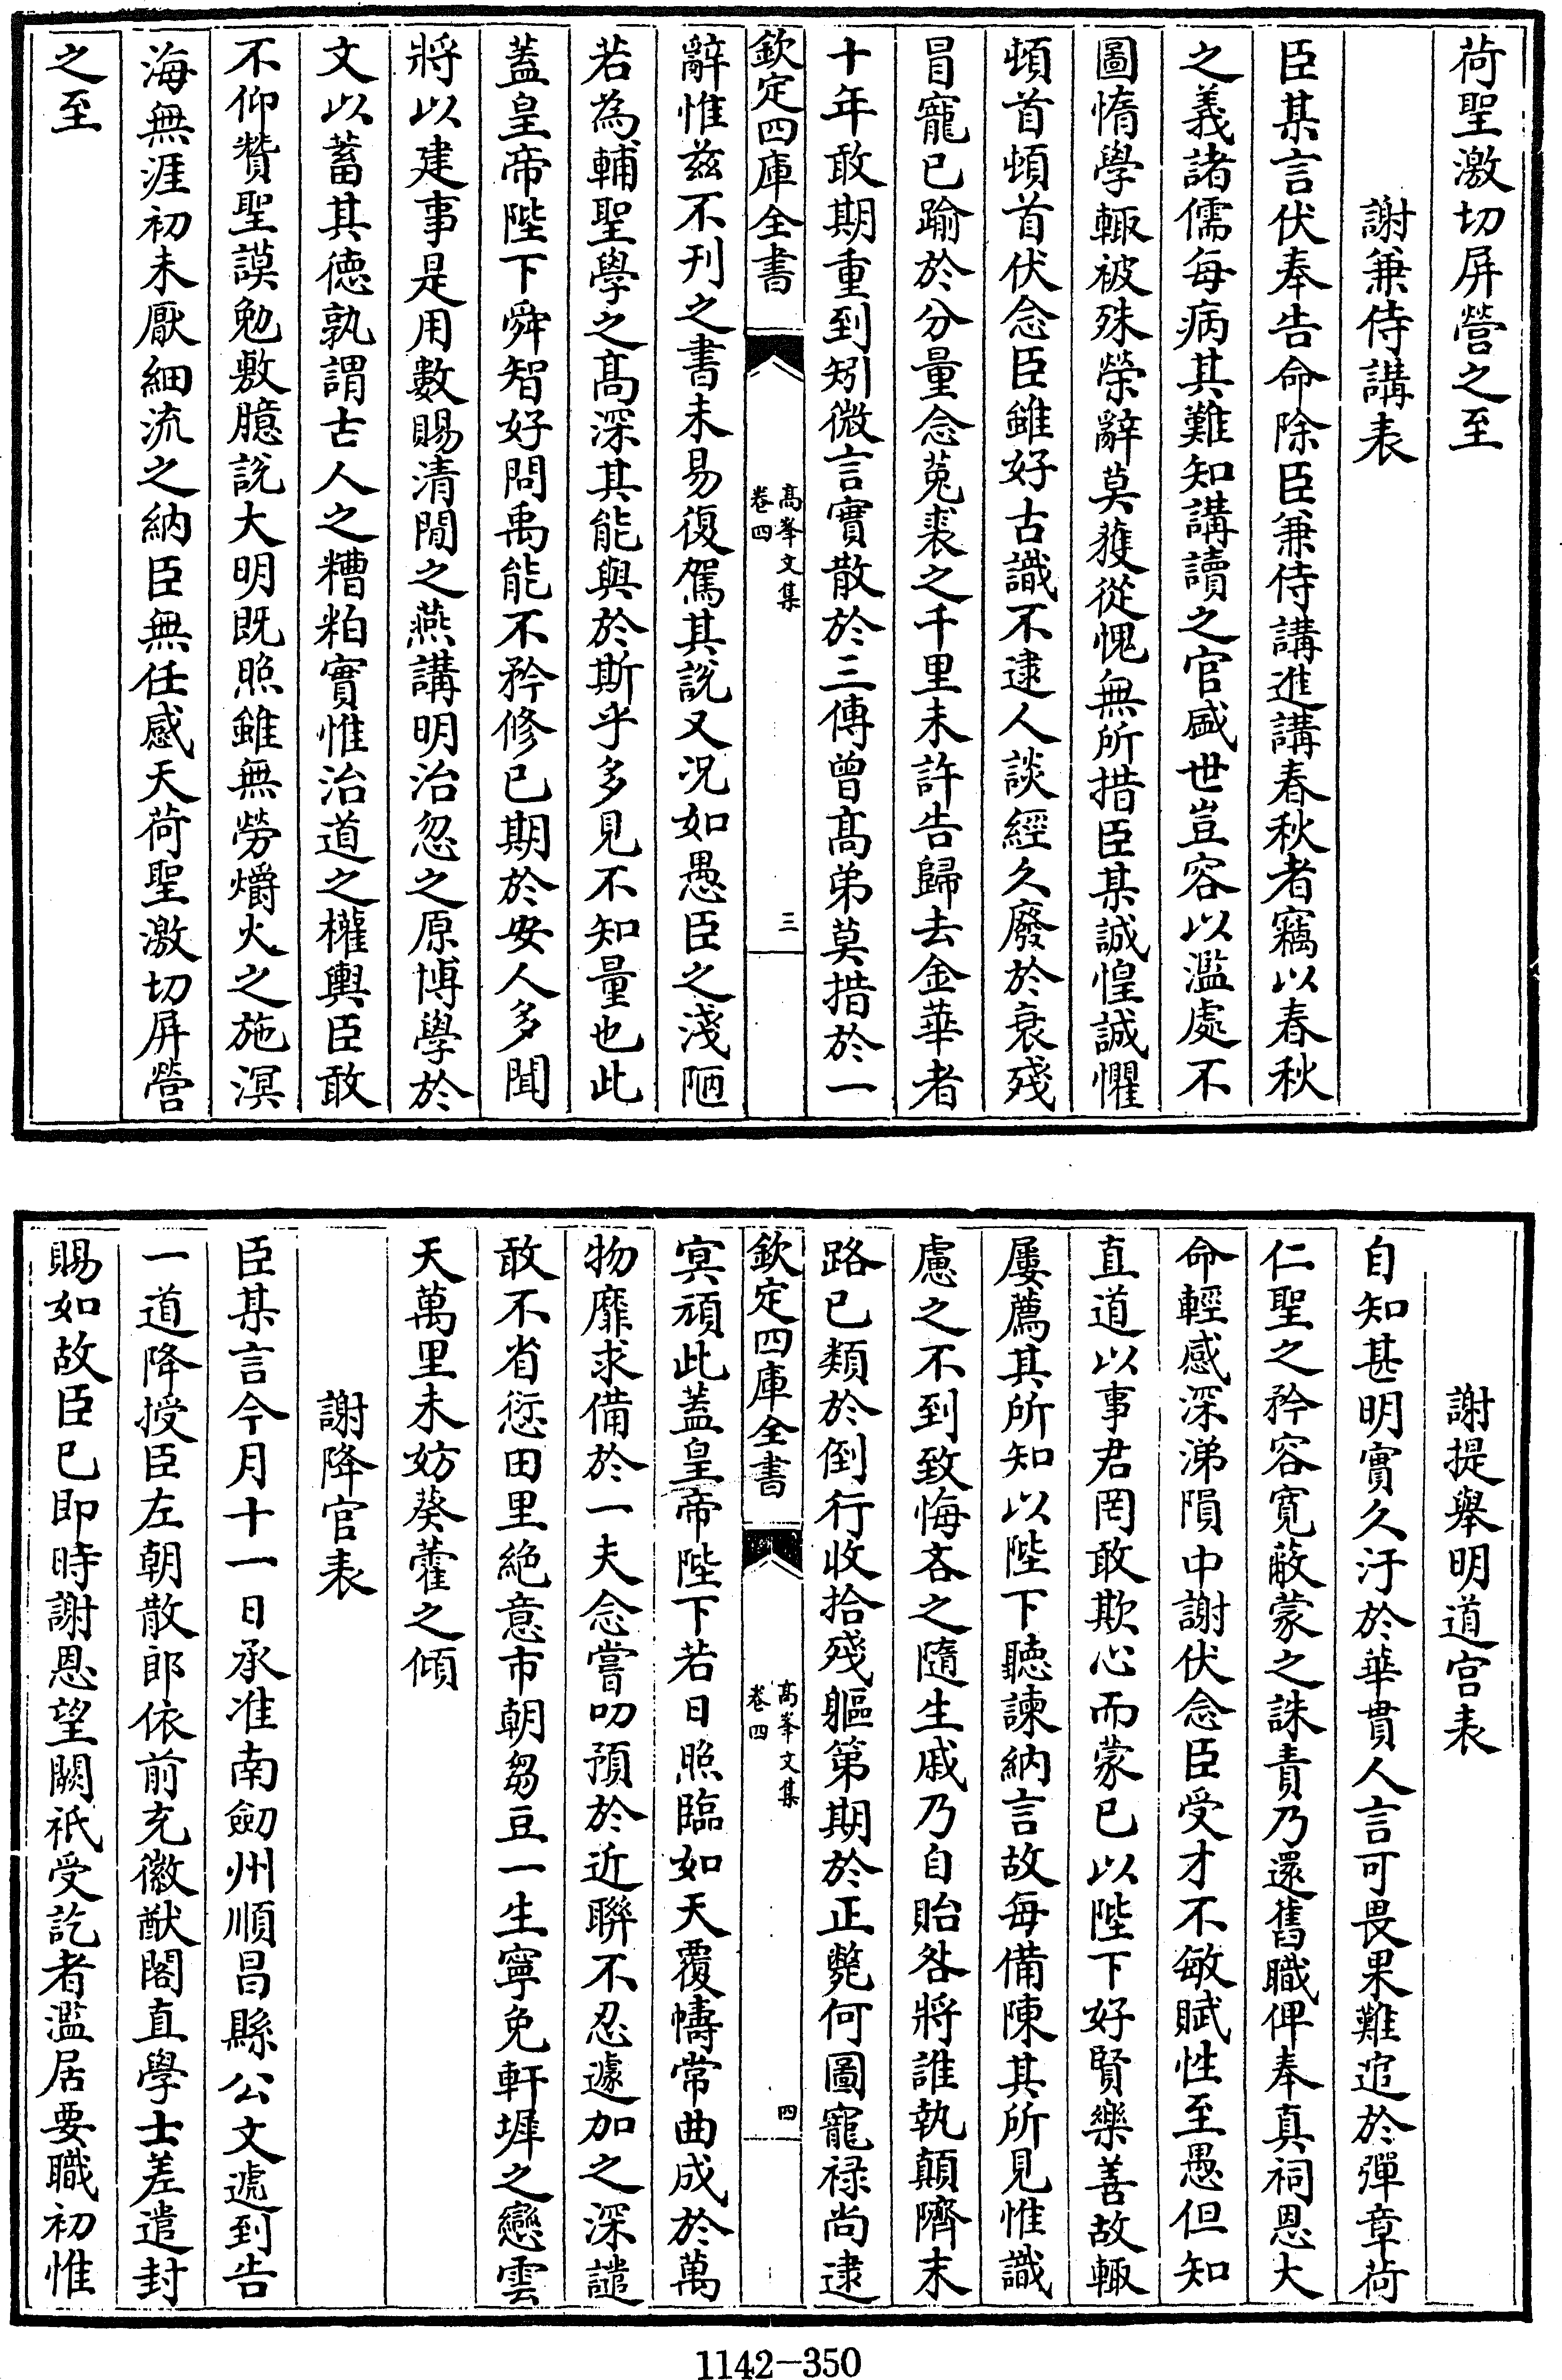 荷聖激切屏營之至
謝兼侍講表
臣某言伏奉告命除臣兼侍講進講春秋者竊以春秋
之義諸儒每病其難知講讀之官盛世豈容以濫處不
圖惰學輒被殊榮辭莫獲從愧無所措臣某誠惶誠懼
頓首頓首伏念臣雖好古識不逮人談經久廢於衰殘
冒寵已踰於分量念菟裘之千里未許告歸去金華者
十年敢期重到矧微言實散於三傳曾高弟莫措於一
欽定四庫全書
高峯文集
卷四
三
辭惟兹不刊之書未易復駕其說又况如愚臣之淺陋
若為輔聖學之高深其能與於斯乎多見不知量也此
蓋皇帝陛下舜智好問禹能不矜修已期於安人多聞
將以建事是用數賜清閒之燕講明治忽之原博學於
文以蓄其德孰謂古人之糟粕實惟治道之權輿臣敢
不仰贊聖謨勉敷臆說大明既照雖無勞爝火之施溟
海無涯初未厭細流之納臣無任感天荷聖激切屏營
之至
謝提舉明道宮表
自知甚明實久汙於華貫人言可畏果難逭於彈章荷
仁聖之矜容寬蔽蒙之誅責乃還舊職俾奉真祠恩大
命輕感深涕隕中謝伏念臣受才不敏賦性至愚但知
直道以事君罔敢欺心而蒙已以陛下好賢樂善故輒
屢薦其所知以陛下聽諫納言故每備陳其所見惟識
慮之不到致悔吝之隨生戚乃自貽咎將誰執顛隮末
路已類於倒行收拾殘軀第期於正斃何圖寵禄尚逮
欽定四庫全書
高峯文集
卷四
四
冥頑此蓋皇帝陛下若日照臨如天覆幬常曲成於萬
物靡求備於一夫念嘗叨預於近聯不忍遽加之深譴
敢不省愆田里絶意市朝芻豆一生寧免軒墀之戀雲
天萬里未妨葵藿之傾
謝降官表
臣某言今月十一日承准南劒州順昌縣公文遞到告
一道降授臣左朝散郎依前充徽猷閣直學士差遣封
賜如故臣已即時謝恩望闕祇受訖者濫居要職初惟
1142-350